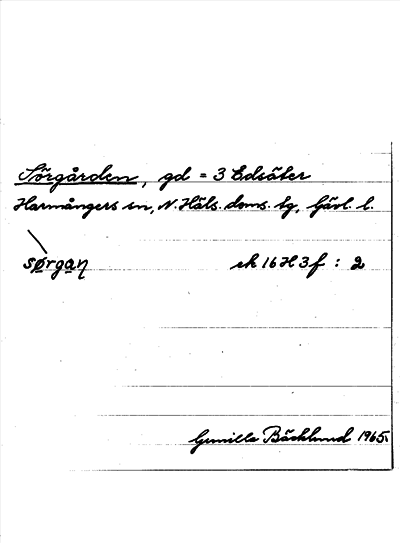 Sörgården, gd = 3 Edsäter
Harmångers sn, N. Häls. doms. tg, Gävl. l.
sørgan̥ ek 16 H 3 f : 2
Gunilla Bäcklund 1965